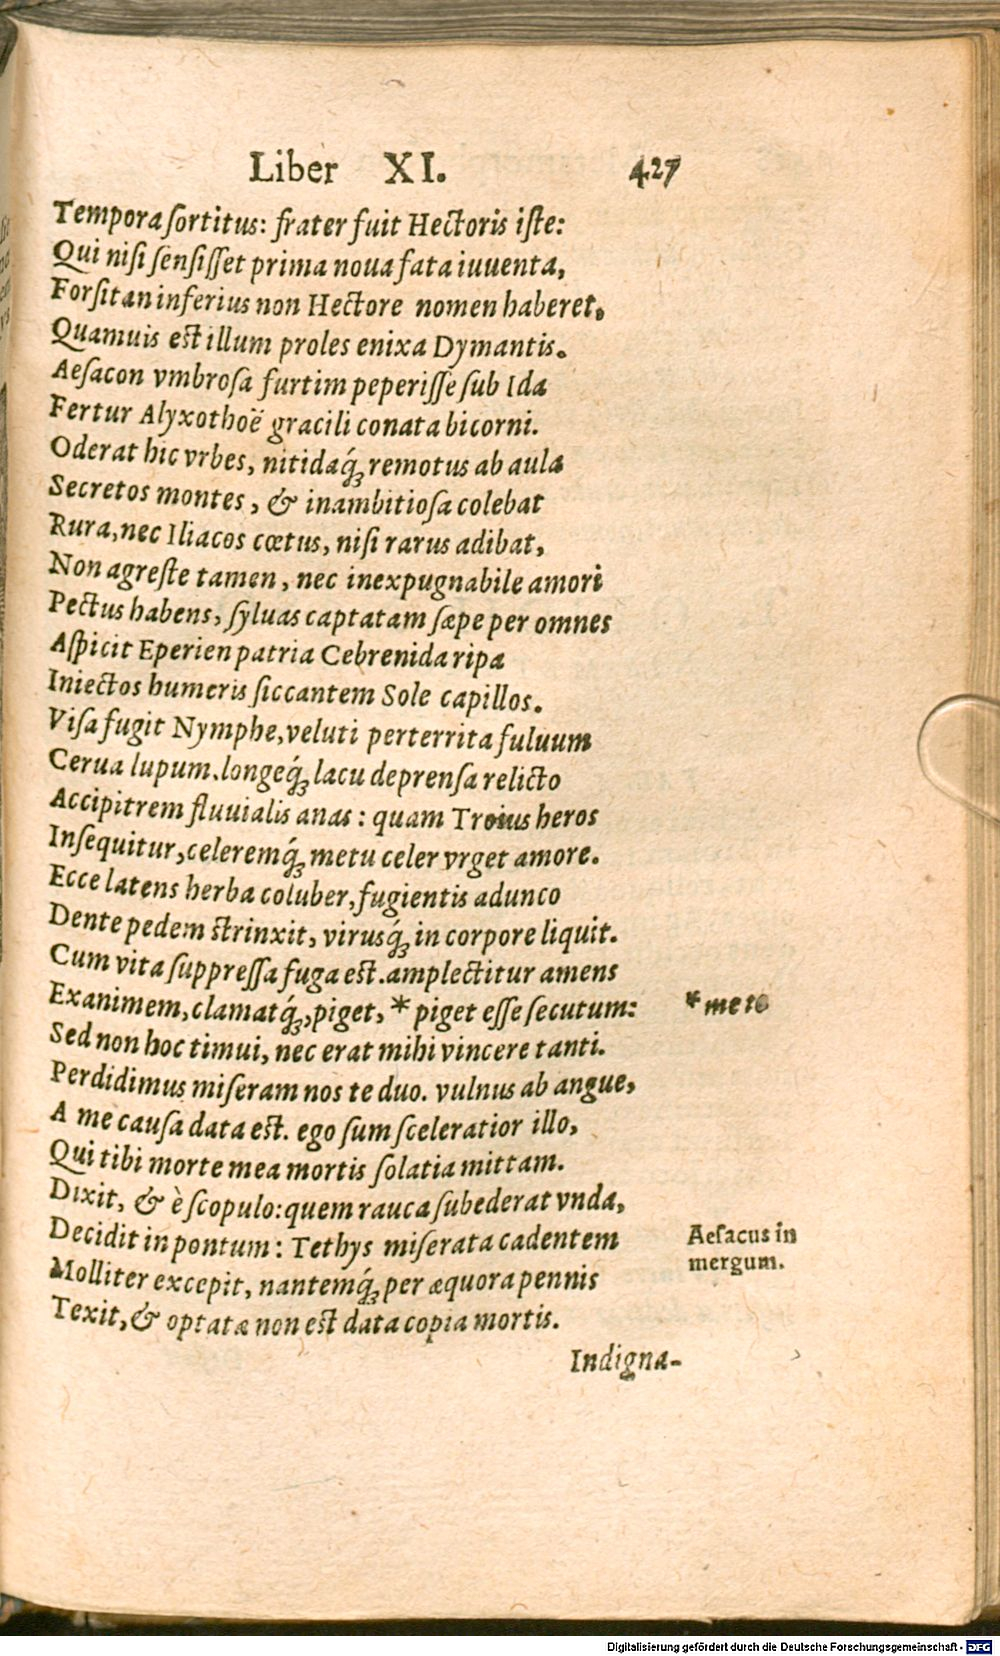 Liber XI. 427
Tempora ſortitus: frater fuit Hectoris iſte:
Qui niſi ſenſiſſet prima noua fata iuuenta,
Forſitan inferius non Hectore nomen haberet,
Quamuis eſt illum proles enixa Dymantis.
Aeſacon vmbroſa furtim peperiſſe ſub Ida
Fertur Alyxothoë gracili conata bicorni.
Oderat hic vrbes, nitidaq́; remotus ab aula
Secretos montes, & inambitioſa colebat
Rura, nec Iliacos cœtus, niſi rarus adibat,
Non agreſte tamen, nec inexpugnabile amori
Pectus habens, ſyluas captatam ſæpe per omnes
Aſpicit Eperien patria Cebrenida ripa
Iniectos humeris ſiccantem Sole capillos.
Viſa fugit Nymphe, veluti perterrita fuluum
Cerua lupum. longeq́; lacu deprenſa relicto
Accipitrem fluuialis anas: quam Troius heros
Inſequitur, celeremq́; metu celer vrget amore.
Ecce latens herba coluber, fugientis adunco
Dente pedem ſtrinxit, virusq́; in corpore liquit.
Cum vita ſuppreſſa fuga eſt. amplectitur amens
Exanimem, clamatq́;, piget, * piget eſſe ſecutum: * me te
Sed non hoc timui, nec erat mihi vincere tanti.
Perdidimus miſeram nos te duo. vulnus ab angue,
A me cauſa data eſt. ego ſum ſceleratior illo,
Qui tibi morte mea mortis ſolatia mittam.
Dixit, & è ſcopulo: quem rauca ſubederat vnda,
Decidit in pontum: Tethys miſerata cadentem
Molliter excepit, nantemq́; per æquora pennis
Texit, & optatæ non eſt data copia mortis.
Aeſacus in
mergum.
Indigna-
Digitalisierung gefördert durch die Deutsche Forschungsgemeinschaft - DFG